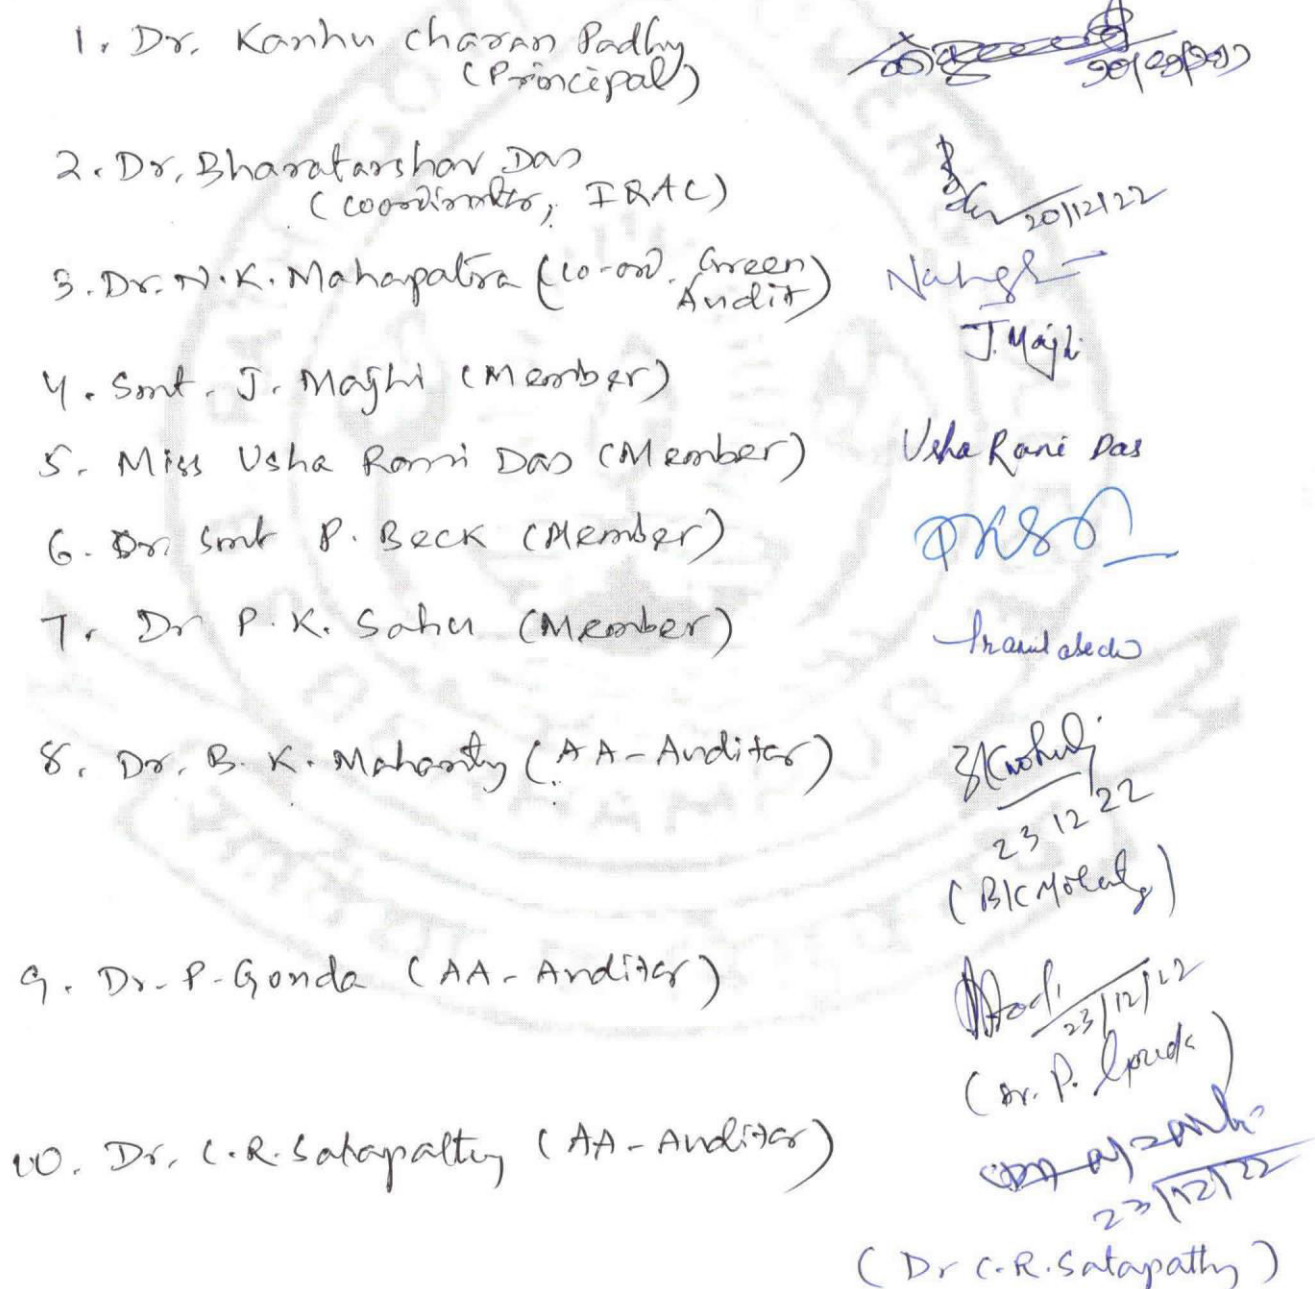 1. Dr. Kanhu Charan Padhy
(Principal)
2. Dr. Bharatarshav Das
(Coordinator, IQAC)
20/12/22
3. Dr. N.K. Mahapatra (Co-ord. Green
Audit)
J. Majhi
4. Smt. J. Majhi (Member)
5. Miss Usha Rani Das (Member) Usha Rani Das
6. Dr. Smt P. Beck (Member)
7. Dr P.K. Sahu (Member)
8. Dr. B.K. Mohanty (AA-Auditor)
23 12 22
(BK Mohanty)
9. Dr. P. Gouda (AA-Auditor)
23/12/22
(Dr. P. Gouda)
10. Dr. C.R. Satapathy (AA-Auditor)
23/12/22
(Dr C.R. Satapathy)